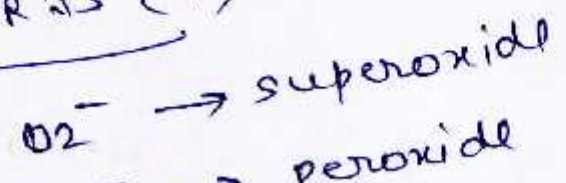 O2⁻ → superoxide
→ peroxide